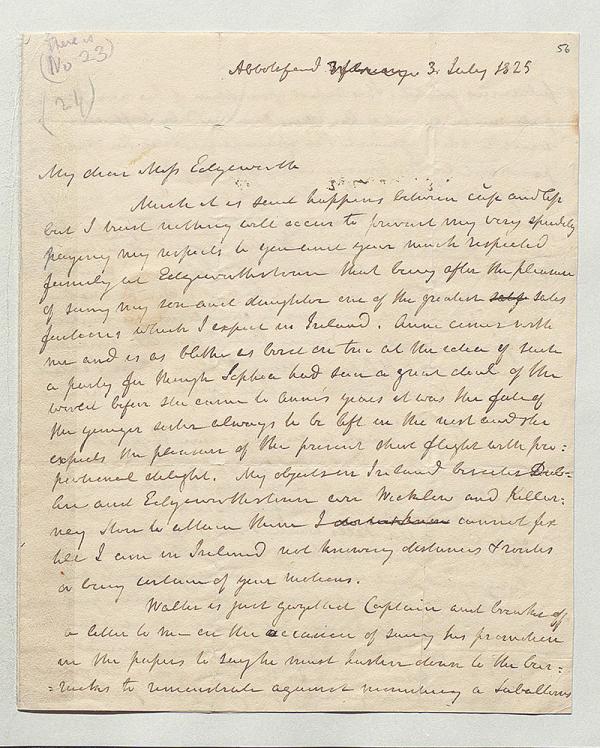 There is
(No 23)
(24)
56
Abbotsford 3 July 1825
My dear Miss Edgeworth
Much it is said happens between cup and lip
but I trust nothing will occur to prevent my very speedily
paying my respects to you and your much respected
family at Edgeworthstown that being after the pleasure
of seeing my son and daughter one of the greatest satis
factions which I expect in Ireland. Anne comes with
me and is as blithe as bird on tree at the idea of such
a party for though Sophia had seen a great deal of the
world before she came to Annes years it was the fate of
the younger sister always to be left in the nest and she
expects the pleasure of the present short flight with pro:
portional delight. My objects in Ireland besides Dub-
lin and Edgeworthstown are Wicklow and Killer:
ney How to attain them I do not know cannot fix
till I am in Ireland not knowing distances & routes
or being certain of your motions.
Walter is just gazetted Captain and breaks off
a letter to me on the occasion of seeing his promotion
in the papers to say he must hasten down to the bar:
=racks to remonstrate against mounting a Subalterns